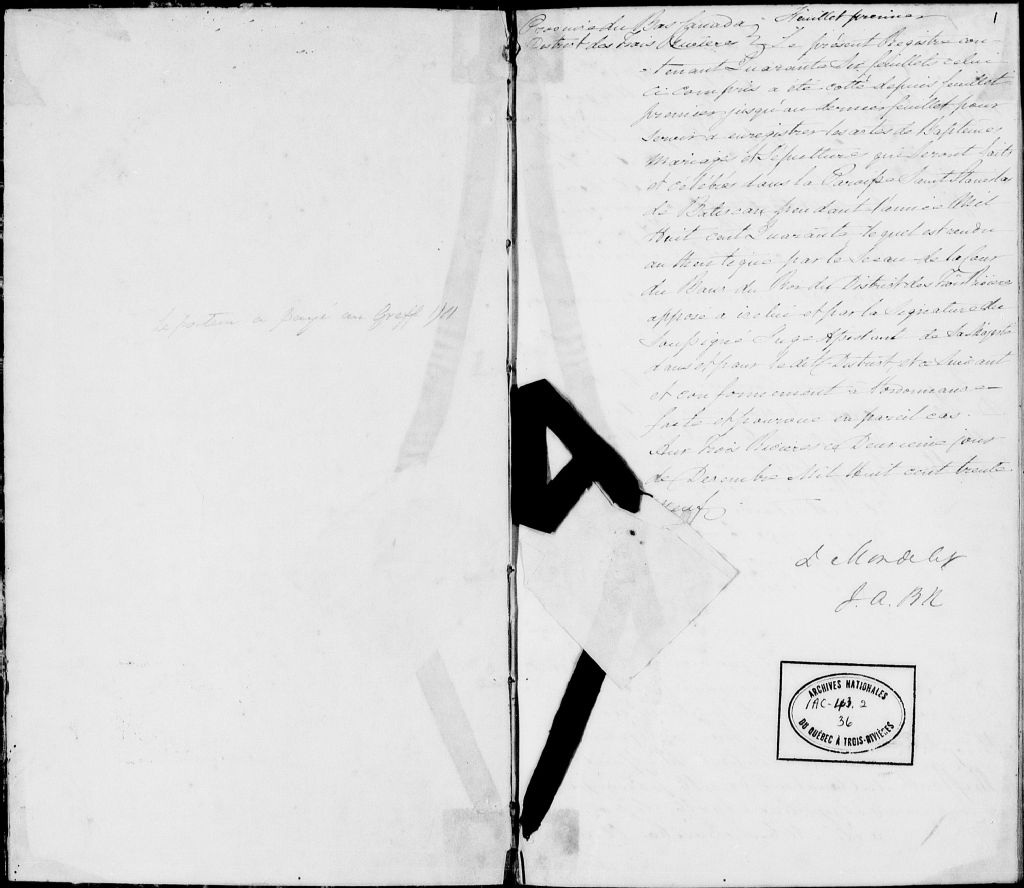 Le porteur a payé au Greffe
1
Province du Bas Canada Feuillet premier
District des trois Rivières Le présent Registre con-
-tenant Quarante Six feuillets celui
ci compris a été cotté depuis feuillet
premier jusqu'au dernier feuillet pour
servir a enregistrer les actes de Baptêmes
Mariage et Sepultures qui Seront faits
et célébrés dans la Paroisse Saint Stanislas
de Batiscan pendant l'année Mil
Huit cent Quarante lequel est rendu
authentique par le Sceau de la Cour
du Banc du Roi du District des Trois Rivières
apposé a icelui et par la Signature du
Soussigné Juge Assistant de Sa Majesté
dans et pour le dit District, et ce Suivant
et conformement a l'ordonnance
faite et pourvue en pareil cas.
Aux Trois Rivières ce Deuxieme jour
de Decembre Mil Huit cent trente
Neuf
D Mondelet
J. A. B R
ARCHIVES NATIONALES
1AC-43.2
36
DU QUÉBEC À TROIS-RIVIÈRES